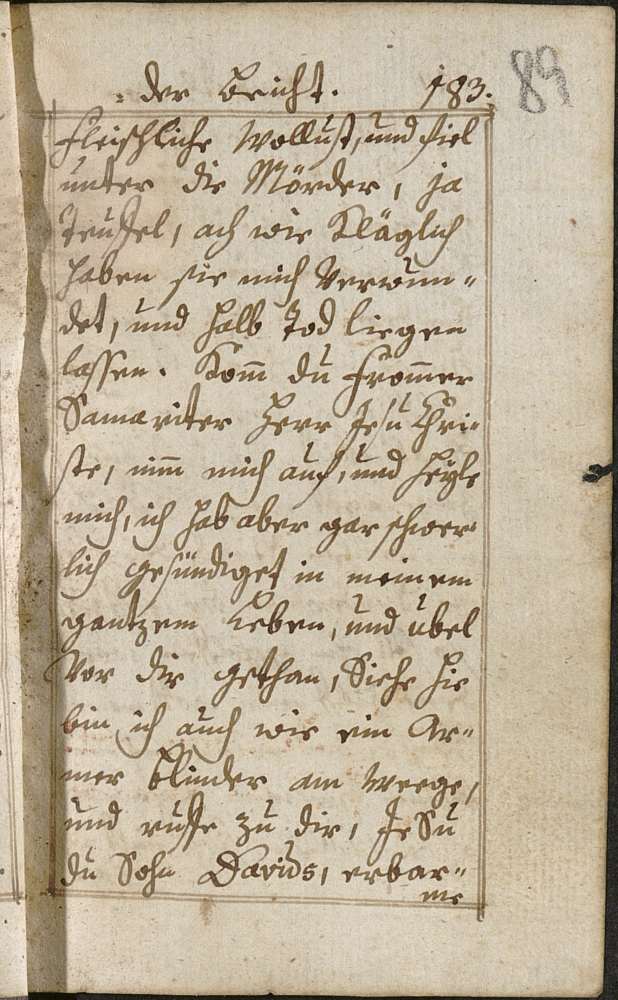 der Beicht. 183.
89
fleischliche Wollust, und fiel
unter die Mörder, ja
Teuffel, ach wie Kläglich
haben sie mich Verwun=
det, und halb Tod liegen
lassen. Kom̄ du from̄er
Samariter Herr Jesu Chri=
ste, nim̄ mich auf, und heyle
mich, ich hab aber gar schwer=
lich gesündiget in meinem
gantzem Leben, und übel
Vor dir gethan, Siehe hie
bin ich auch wie ein Ar=
mer blinder am Weege,
und ruffe zu dir, JeSu
du Sohn Davids, erbar=
me